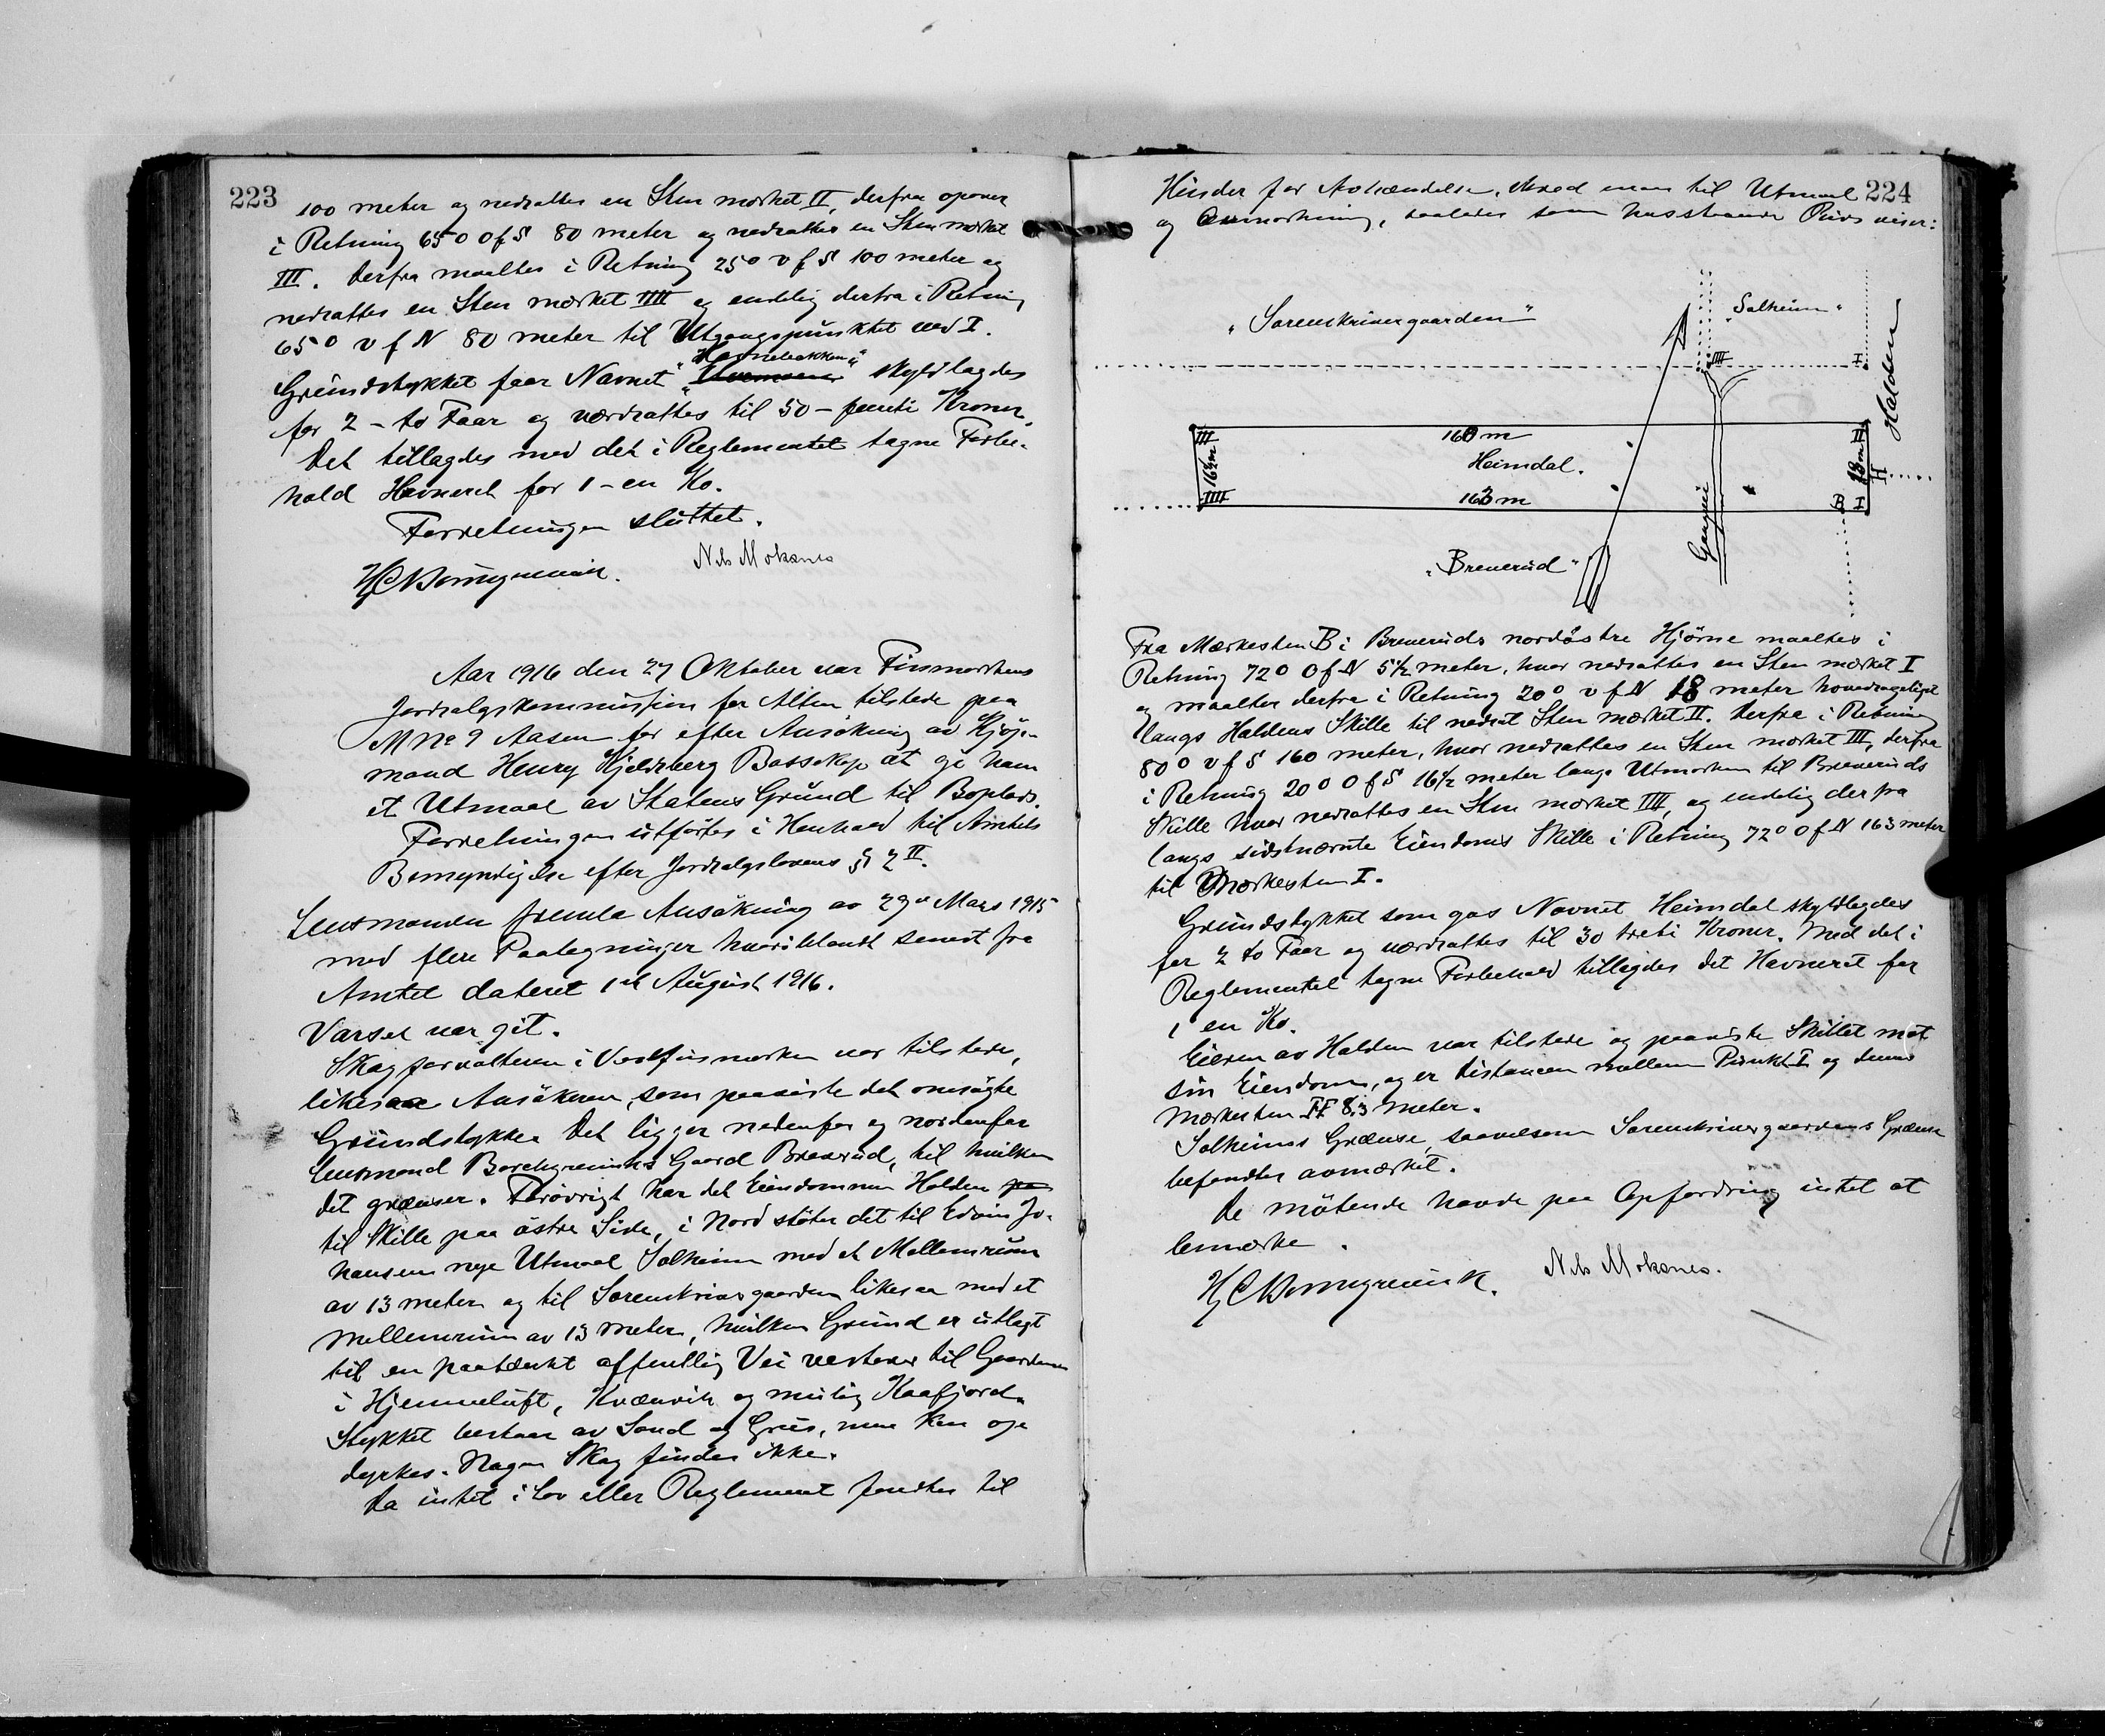 223
100 meter og nedsattes en Sten mærket II, derfra opover
i Retning 65° O f S 80 meter og nedsattes en Sten mærket
III. Derfra maaltes i Retning 25° V f S 100 meter og
nedsattes en Sten mærket IIII og endelig derfra i Retning
65° V f N 80 meter til Utgangspunktet ved I.
"Havnebakken"
Grundstykket faar Navnet skyldlagdes
for 2 - to Øre og værdsattes til 50 - femti Kroner.
Det tillagdes med det i Reglementet tagne Forbe-
hold Havneret for 1 - en Ko.
Forretningen sluttet.
Nils Moksnes
Aar 1916 den 27 Oktober var Finmarkens
Jordsalgskommission for Alten tilstede paa
M No 9 Aasen for efter Ansökning av Kjöp-
mand Henry Kjeldsberg Bossekop at gi ham
et Utmaal av Statens Grund til Boplads.
Forretningen utförtes i Henhold til Amtets
Bemyndigelse efter Jordsalgslovens § 2 II.
Lensmanden fremla Ansökning av 29de Mars 1915
med flere Paategninger hvoriblandt senest fra
Amtet dateret 1ste August 1916.
Varsel var git.
Skogforvalteren i Vestfinmarken var tilstede,
likesaa Ansökeren, som paaviste det omsögte
Grundstykke. Det ligger nedenfor og nordenfor
Lensmand Borchgrevinks Gaard Breverud, til hvilken
det grænser. Forövrigt har det Eiendommen Halden
til Skille paa östre Side, i Nord stöter det til Edvin Jo-
hansens nye Utmaal Solheim med et Mellemrum
av 13 meter og til Sorenskrivergaarden likesaa med et
Mellemrum av 13 meter, hvilken Grund er utlagt
til en paatænkt offentlig Vei vestover til Gaardene
i Hjemmeluft, Kvænvik og mulig Kaafjord.
Stykket bestaar av Sand og Grus, men kan op-
dyrkes. Nogen Skog findes ikke.
Da intet i Lov eller Reglement fandtes til
224
Hinder for Avhændelse, skred man til Utmaal
og Avmerkning, saaledes som hosstaaende Rids viser:
"Sorenskrivergaarden"
"Solheim"
Halden
IIII
I
III
160 m
II
16½ m
Heimdal.
18 m
H
IIII
163 m
B I
Gangvei
"Breverud"
Fra Mærkesten B i Breveruds nordöstre Hjörne maaltes i
Retning 72° O f N 5½ meter, hvor nedsattes en Sten mærket I
og maaltes derfra i Retning 20° V f N 18 meter hovedsagelig
langs Haldens Skille til nedsat Sten mærket II. Derfra i Retning
80° V f S 160 meter, hvor nedsattes en Sten mærket III, derfra
i Retning 20° O f S 16½ meter langs Utmarken til Breveruds
Skille hvor nedsattes en Sten mærket IIII, og endelig derfra
langs sidstnævnte Eiendoms Skille i Retning 72° O f N 163 meter
til Mærkesten I.
Grundstykket som gas Navnet Heimdal skyldlagdes
for 2 to Øre og værdsattes til 30 treti Kroner. Med det i
Reglementet tagne Forbehold tillagdes det Havneret for
1 en Ko.
Eieren av Halden var tilstede og paaviste Skillet mot
sin Eiendom, og er Distancen mellem Punkt I og denne
Mærkesten H 8,3 meter.
Solheims Grænse, saavelsom Sorenskrivergaardens Grænse
befandtes avmærket.
De mötende havde paa Opfordring intet at
bemærke.
Nils Moksnes.
H C Borchgrevink.